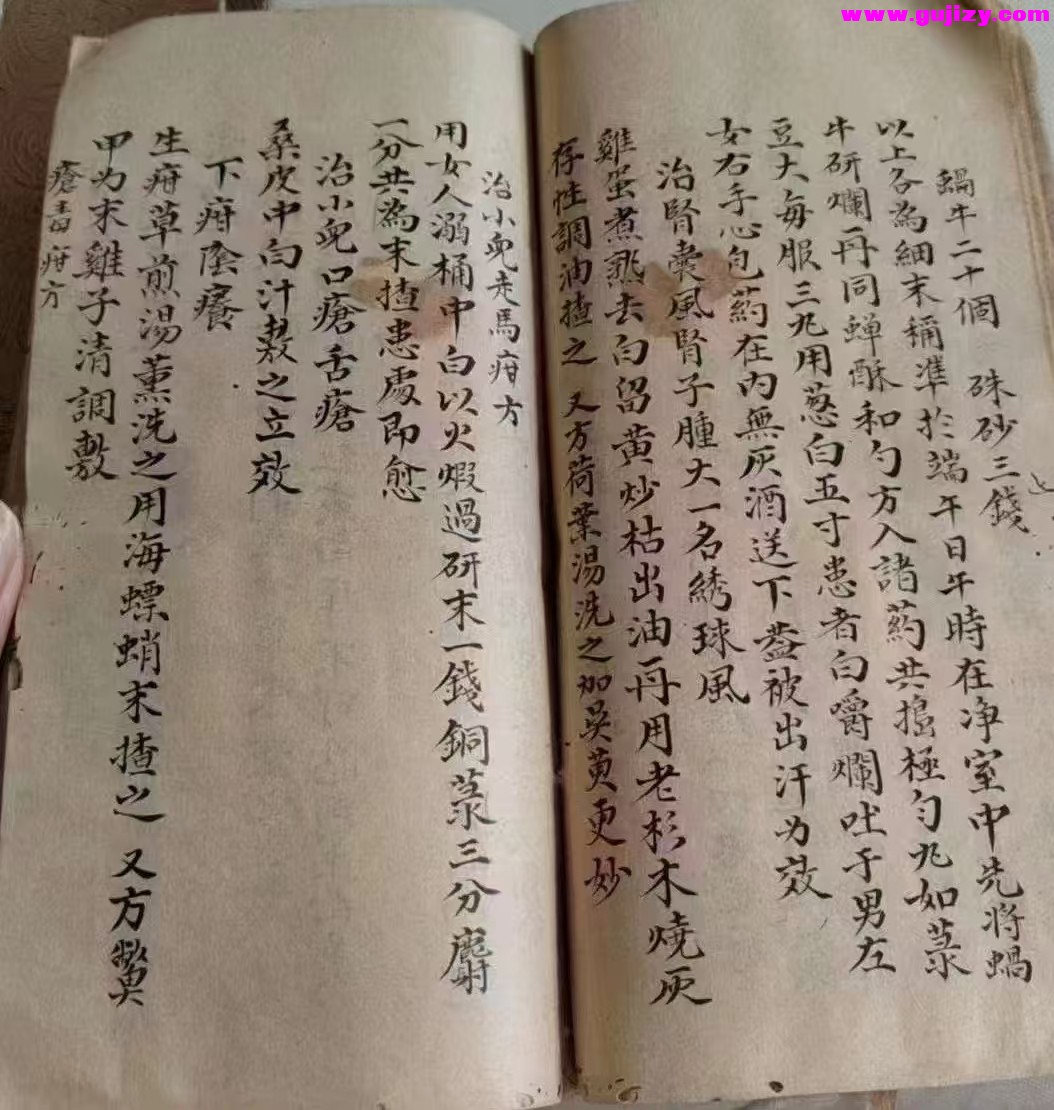 www.gujizy.com
蝸牛二十個 硃砂三錢
以上各為細末稱準於端午日午時在净室中先將蝸
牛研爛再同蟬酥和勻方入諸药共搗極勻丸如菉
豆大每服三丸用葱白五寸患者白嚼爛吐于男左
女右手心包葯在內無灰酒送下葢被出汗为效
治腎囊風腎子腫大一名綉球風
雞蛋煮熟去白留黄炒枯出油再用老杉木燒灰
存性調油揸之 又方荷葉湯洗之加吳萸更妙
治小兒走馬疳方
用女人溺桶中白以火煆過研末一錢銅菉三分麝
一分共為末揸患處即愈
治小兒口瘡舌瘡
桑皮中白汁敷之立效
下疳陰癢
生疳草煎湯薰洗之用海螵蛸末揸之 又方鱉
甲为末雞子清調敷
瘡毒疳方